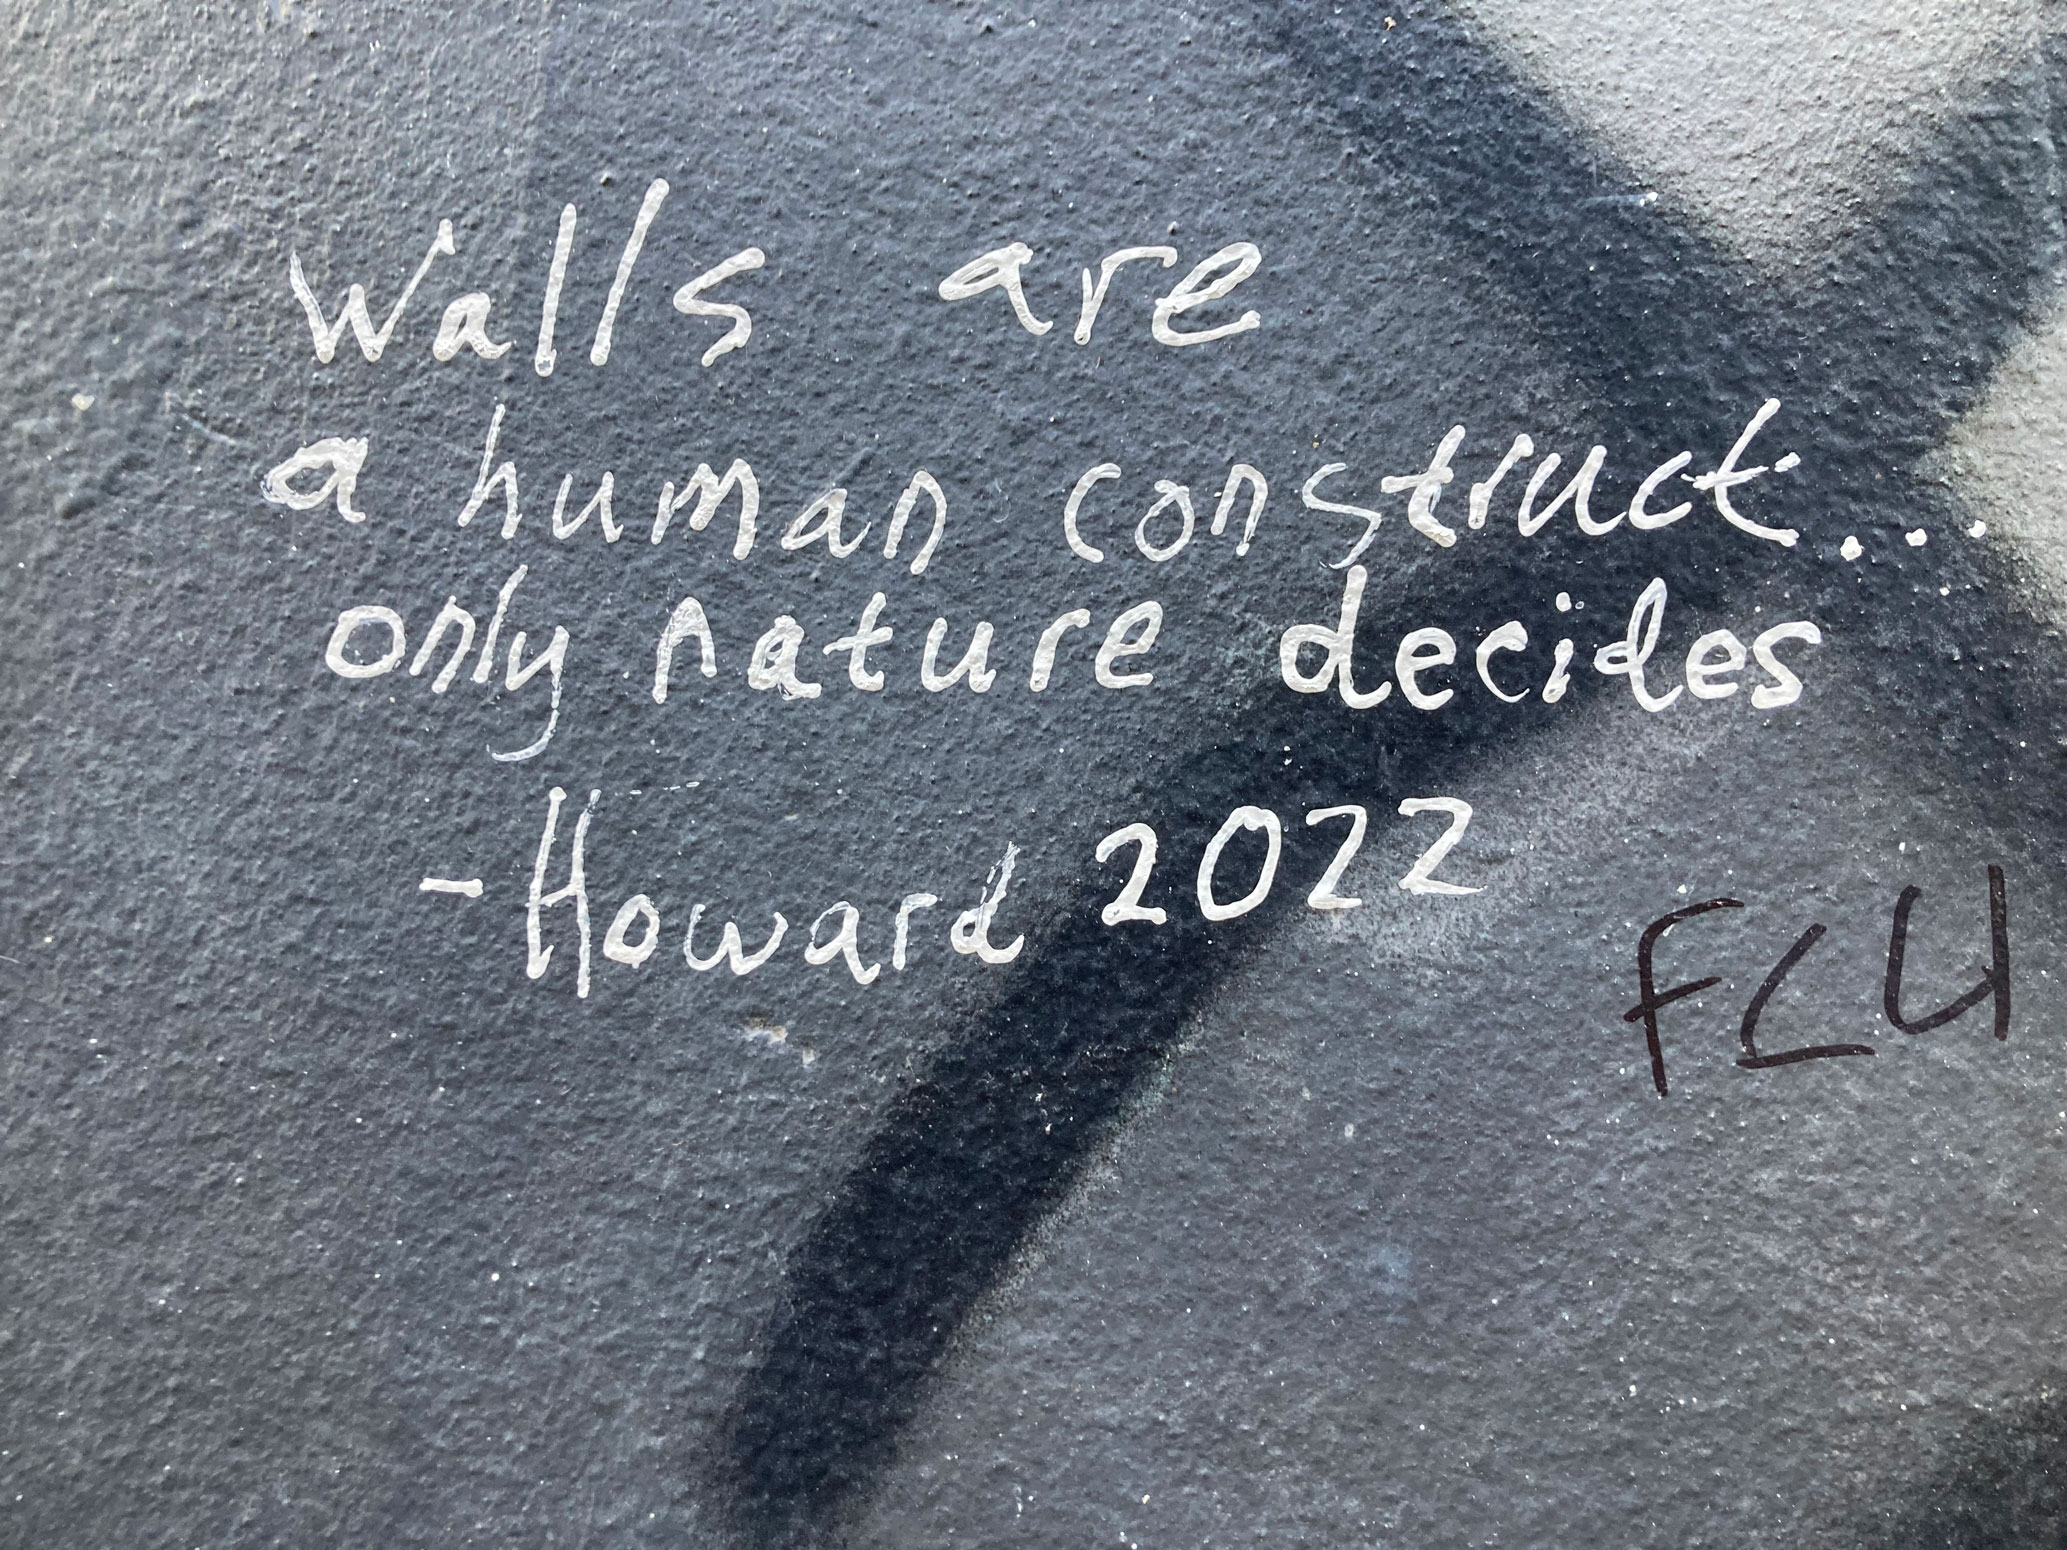 Walls are
a human construct...
only nature decides
-Howard 2022
FCU